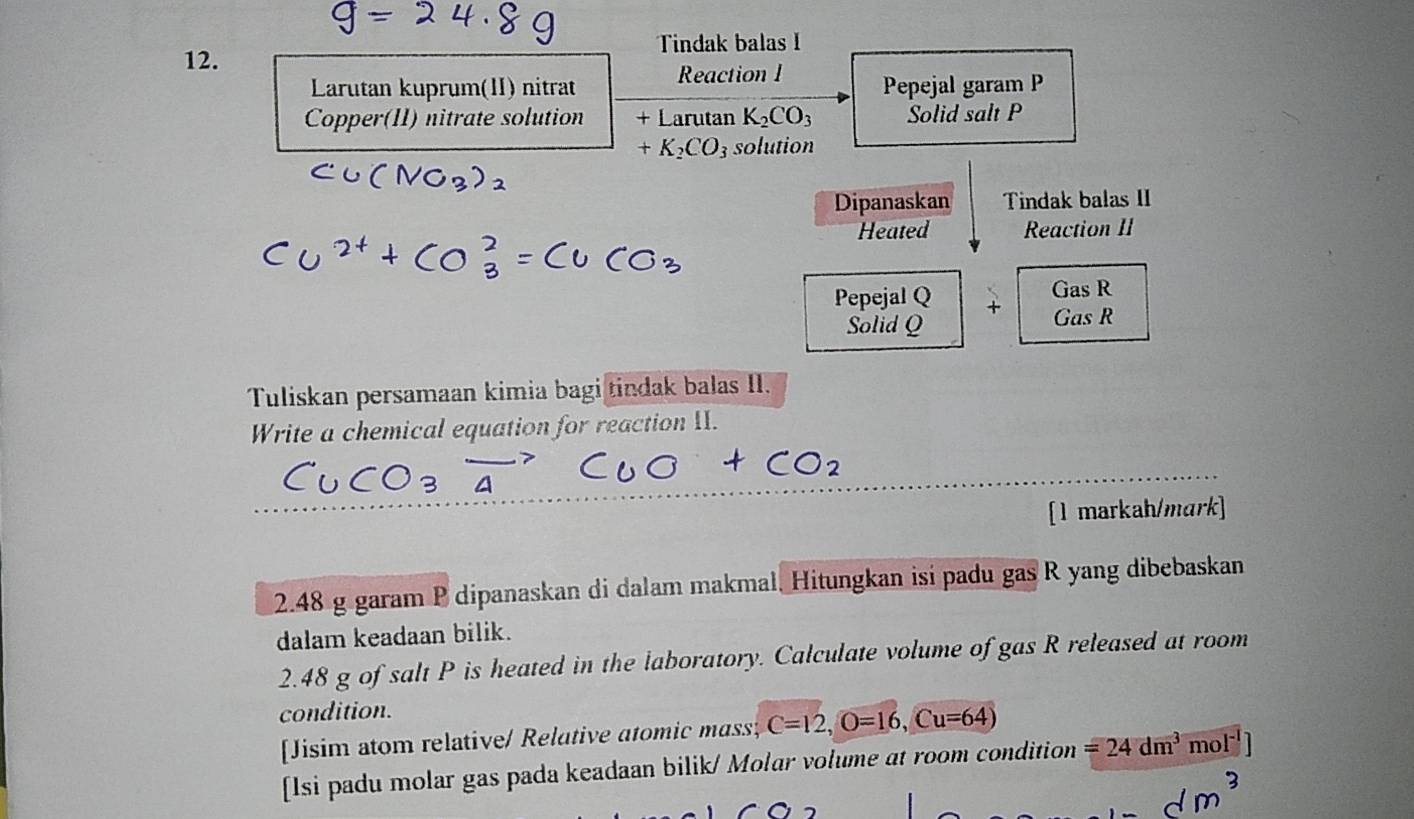 g = 24.8g
12.
Larutan kuprum(II) nitrat
Copper(II) nitrate solution
Tindak balas I
Reaction I
+ Larutan K₂CO₃
+ K₂CO₃ solution
Pepejal garam P
Solid salt P
Cu(NO₃)₂
Dipanaskan
Heated
Tindak balas II
Reaction II
Cu²⁺ + CO₃² = CuCO₃
Pepejal Q
Solid Q
+
Gas R
Gas R
Tuliskan persamaan kimia bagi tindak balas II.
Write a chemical equation for reaction II.
CuCO₃ →Δ CuO + CO₂
[1 markah/mark]
2.48 g garam P dipanaskan di dalam makmal. Hitungkan isi padu gas R yang dibebaskan
dalam keadaan bilik.
2.48 g of salt P is heated in the laboratory. Calculate volume of gas R released at room
condition.
[Jisim atom relative/ Relative atomic mass; C=12, O=16, Cu=64)
[Isi padu molar gas pada keadaan bilik/ Molar volume at room condition = 24 dm³ mol⁻¹]
dm³